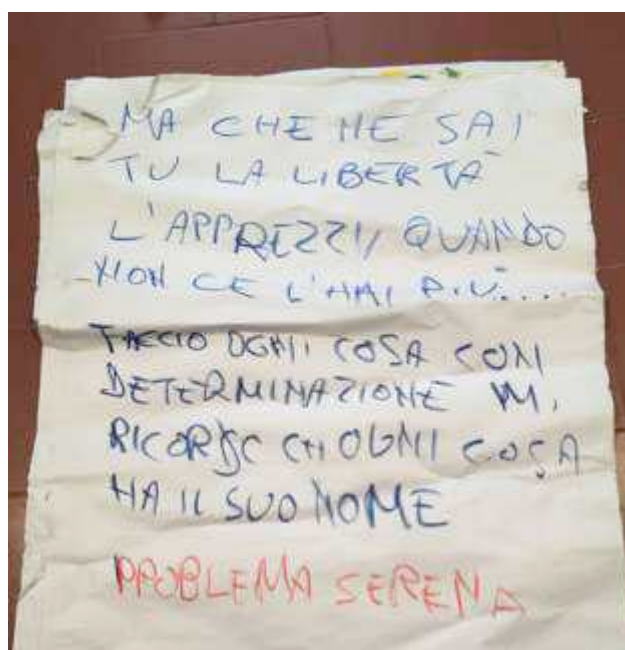 MA CHE NE SAI
TU LA LIBERTÀ
L'APPREZZI, QUANDO
NON CE L'HAI PIÙ....
FACCIO OGNI COSA CON
DETERMINAZIONE MI
OGNI COSA
HA IL SUO NOME
PROBLEMA SERENA